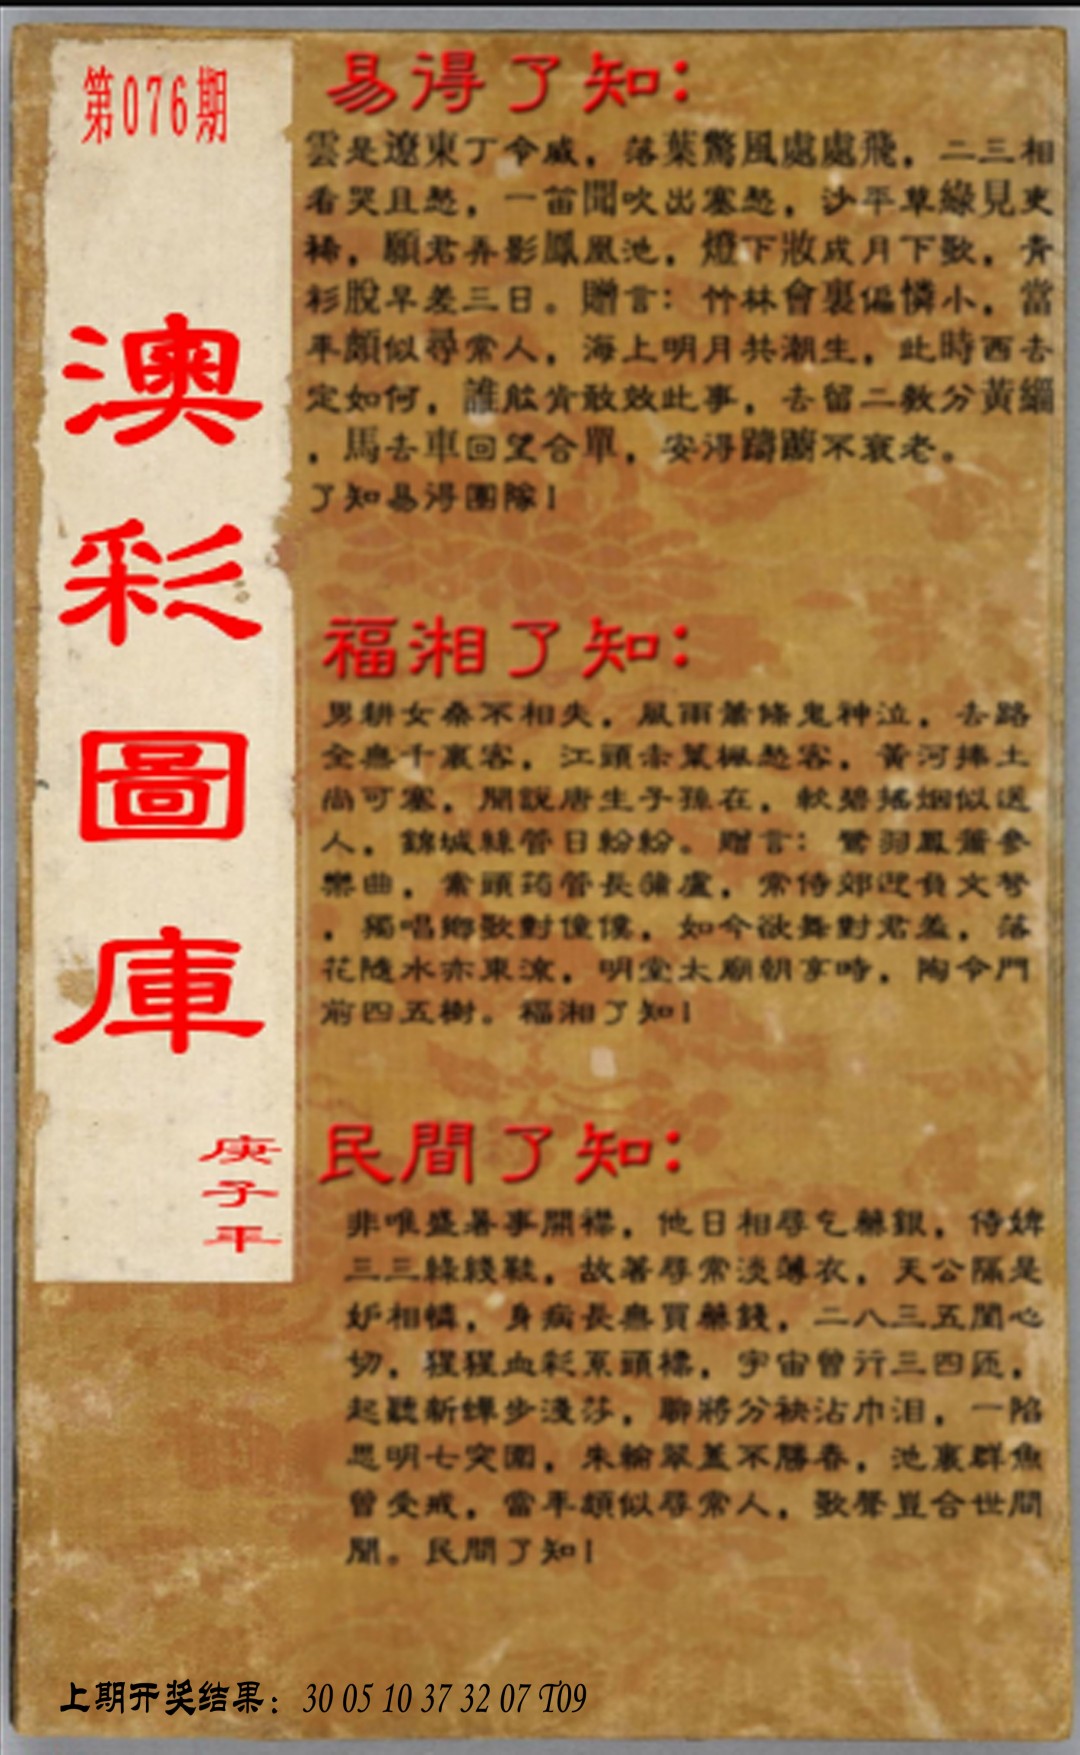 第076期
澳
彩
圖
庫
庚
子
年
易得了知：
雲是遼東丁令威，落葉驚風處處飛，二三相
看哭且愁，一笛聞吹出塞愁，沙平草綠見吏
稀，願君弄影鳳凰池，燈下妝成月下歌，青
衫脫早差三日。贈言：竹林會裏偏憐小，當
年頗似尋常人，海上明月共潮生，此時西去
定如何，誰能肯敢效此事，去留二教分黃緇
，馬去車回望合單，安得躊躕不衰老。
了知易得團隊！
福湘了知：
男耕女桑不相失，風雨蕭條鬼神泣，去路
全無千裏客，江頭赤葉楓愁客，黃河捧土
尚可塞，聞說唐生子孫在，軟碧搖烟似送
人，錦城絲管日紛紛。贈言：鸞羽鳳簫參
樂曲，案頭筠管長蒲盧，常侍郊迎負文弩
，獨唱鄉歌對僮僕，如今欲舞對君羞，落
花隨水亦東流，明堂太廟朝享時，陶令門
前四五樹。福湘了知！
民間了知：
非唯盛暑事開襟，他日相尋乞藥銀，侍婢
三三綠綫鞋，故著尋常淡薄衣，天公隔是
妒相憐，身病長無買藥錢，二八三五閨心
切，猩猩血彩系頭標，宇宙曾行三四匝，
起聽新蟬步淺莎，聊將分袂沾巾泪，一陷
思明七突圍，朱輪翠蓋不勝春，池裏群魚
曾受戒，當年頗似尋常人，歌聲豈合世間
聞。民間了知！
上期开奖结果：30 05 10 37 32 07 T09